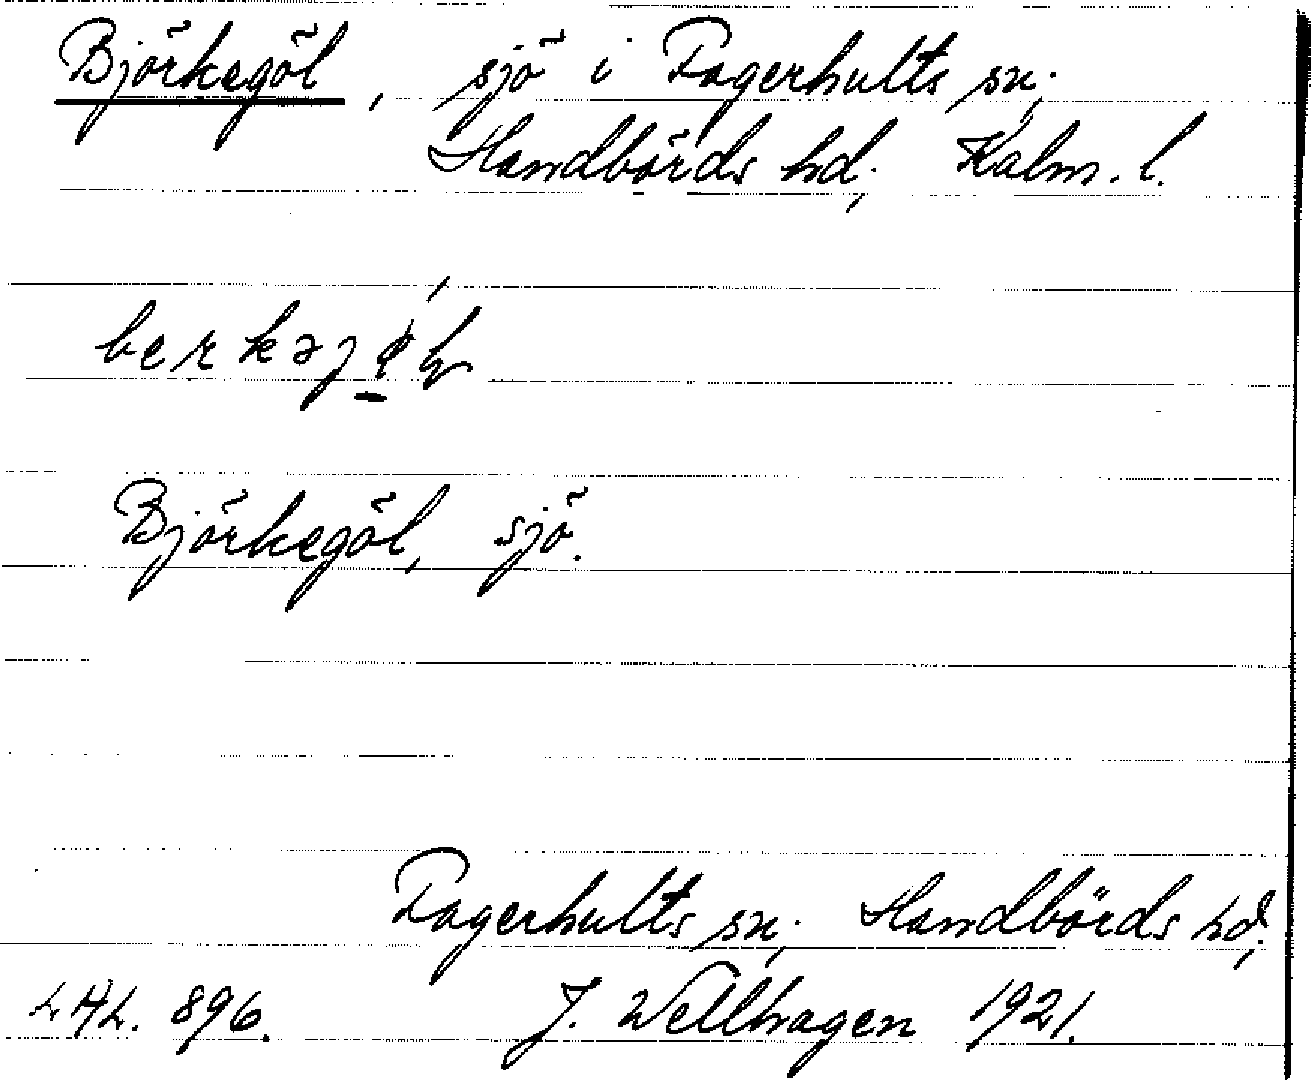 Björkegöl, sjö i Fagerhults sn;
Handbörds hd. Kalm. l.
Björkegöl, sjö.
Fagerhults sn; Handbörds hd;
896. J. Wellhagen 1921.